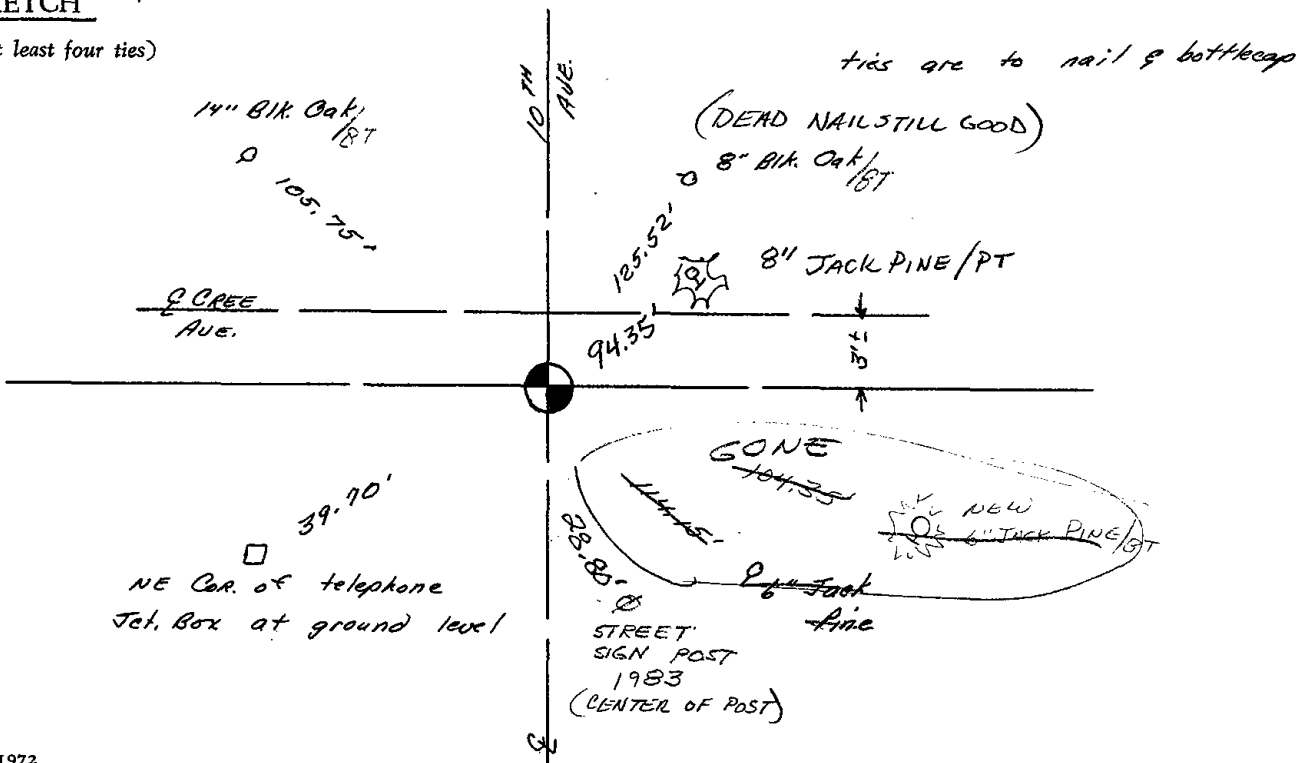 ETCH
t least four ties)
ties are to nail & bottlecap
10TH AVE.
14" Blk. Oak/BT
(DEAD NAIL STILL GOOD)
8" Blk. Oak/BT
105.75'
125.52'
8" JACK PINE/PT
℄ CREE
AVE.
94.35'
3'±
GONE
104.35'
44.15'
NEW
6" JACK PINE/BT
39.70'
28.80'
6" Jack
Pine
NE COR. of telephone
Jct. Box at ground level
STREET
SIGN POST
1983
(CENTER OF POST)
℄
1972